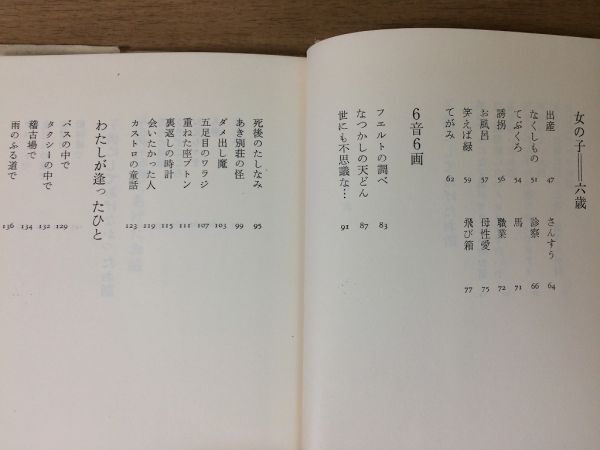 女の子——六歳
出産 47
なくしもの 51
てぶくろ 54
誘拐 56
お風呂 57
笑えば縁 59
てがみ 62
さんすう 64
診察 66
馬 71
職業 72
母性愛 75
飛び箱 77
6音6画
フェルトの調べ 83
なつかしの天どん 87
世にも不思議な… 91
死後のたしなみ 95
あき別荘の怪 99
ダメ出し魔 103
五足目のワラジ 107
重ねた座ブトン 111
裏返しの時計 115
会いたかった人 119
カストロの童話 123
わたしが逢ったひと
バスの中で 129
タクシーの中で 132
稽古場で 134
雨のふる道で 136